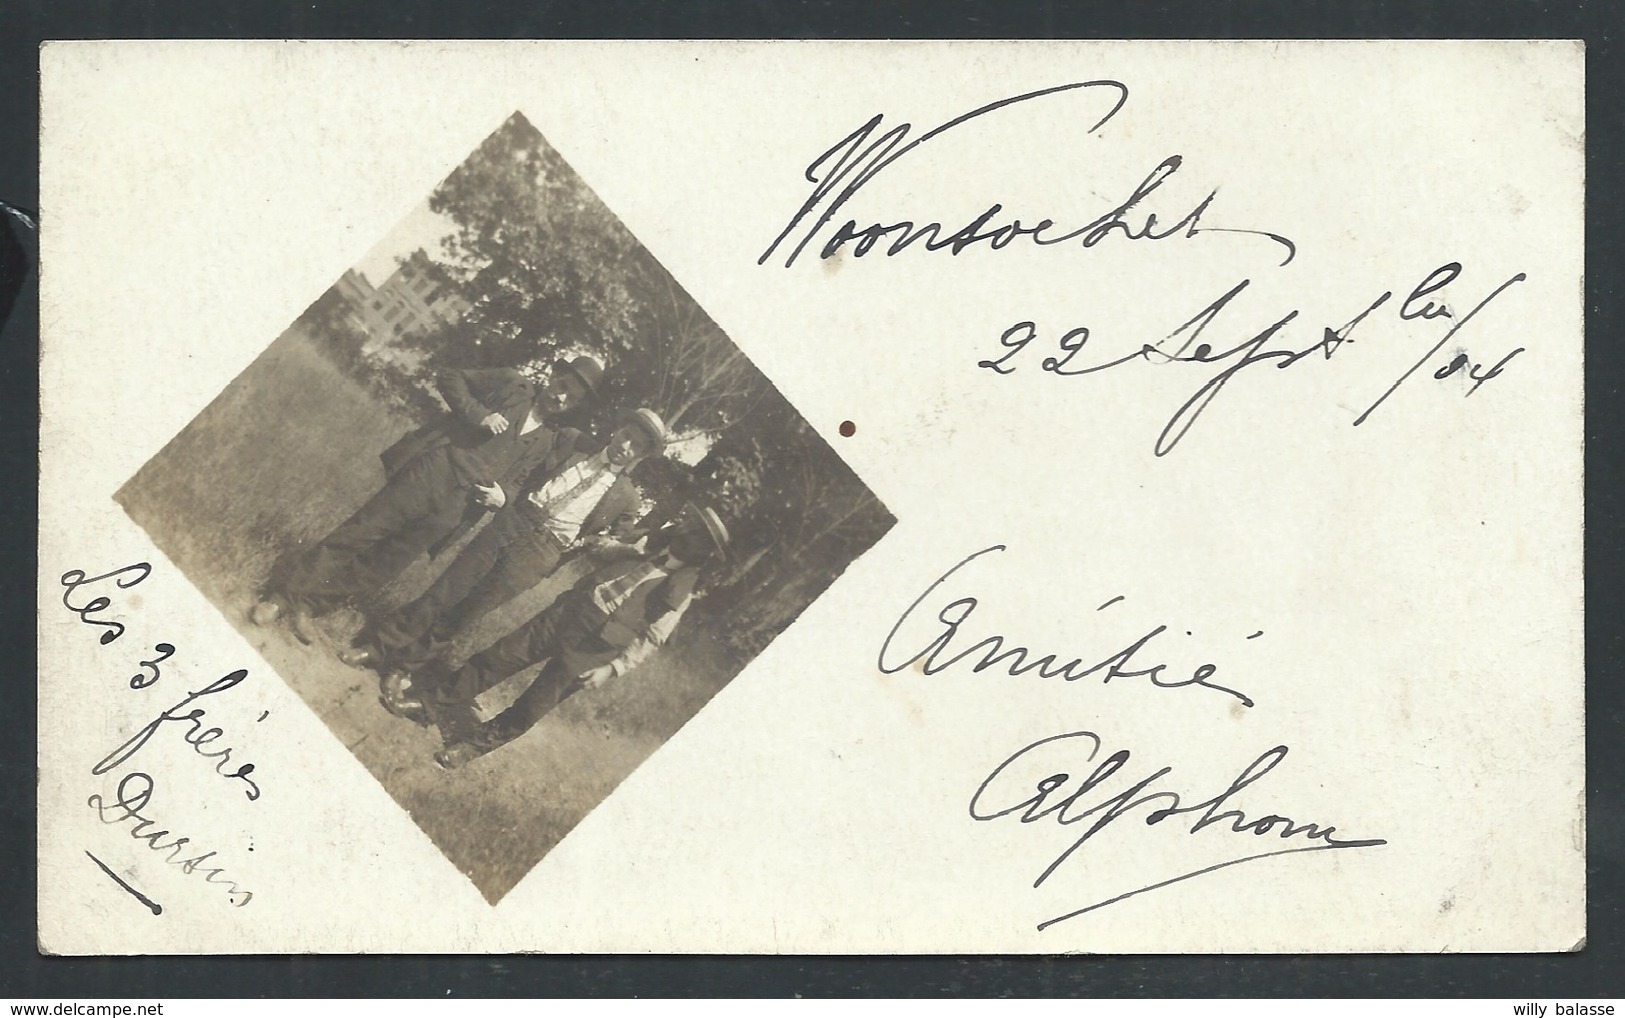 Woonsocket
22 Septbre/04
Amitié
Alphonse
Les 3 frères
Dursin
willy balasse